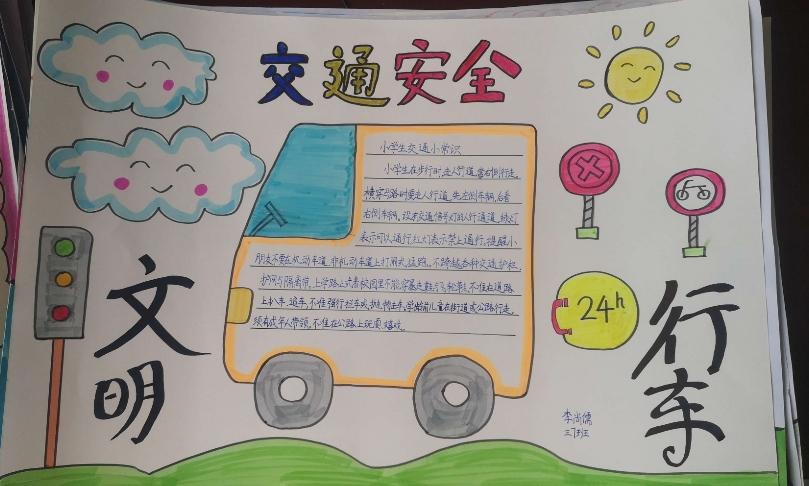 交通安全
小学生交通小常识
小学生在步行时走人行道,靠右侧行走。
横穿马路时要走人行道,先左侧车辆,后看
右侧车辆,设有交通信号灯的人行通道,绿灯
表示可以通行,红灯表示禁止通行,提醒小
朋友不要在机动车道、非机动车道上打闹、猛跑。不跨越各种交通护栏、
护网与隔离带。上学路上或者校园里不能穿暴走鞋
上扒车、追车,不准强行拦车或抛物击车。学龄前儿童在街道或公路行走,
须有成年人带领,不准在公路上玩耍嬉戏。
文明
行车
24h
李尚儒
三7班